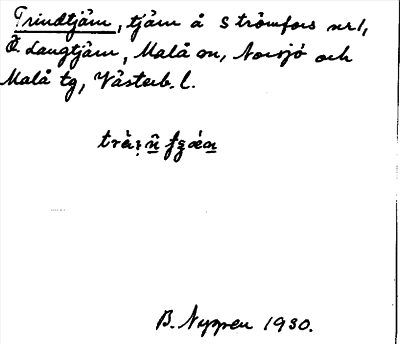 Trindtjärn, tjärn å Strömfors nr 1,
Ö. Långtjärn, Malå sn, Norsjö och
Malå tg, Västerb. l.
B. Nyppen 1930.